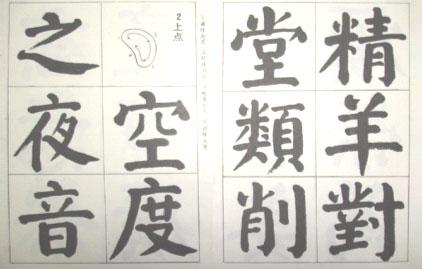 精羊對
堂類削
2上点
空度
之夜音